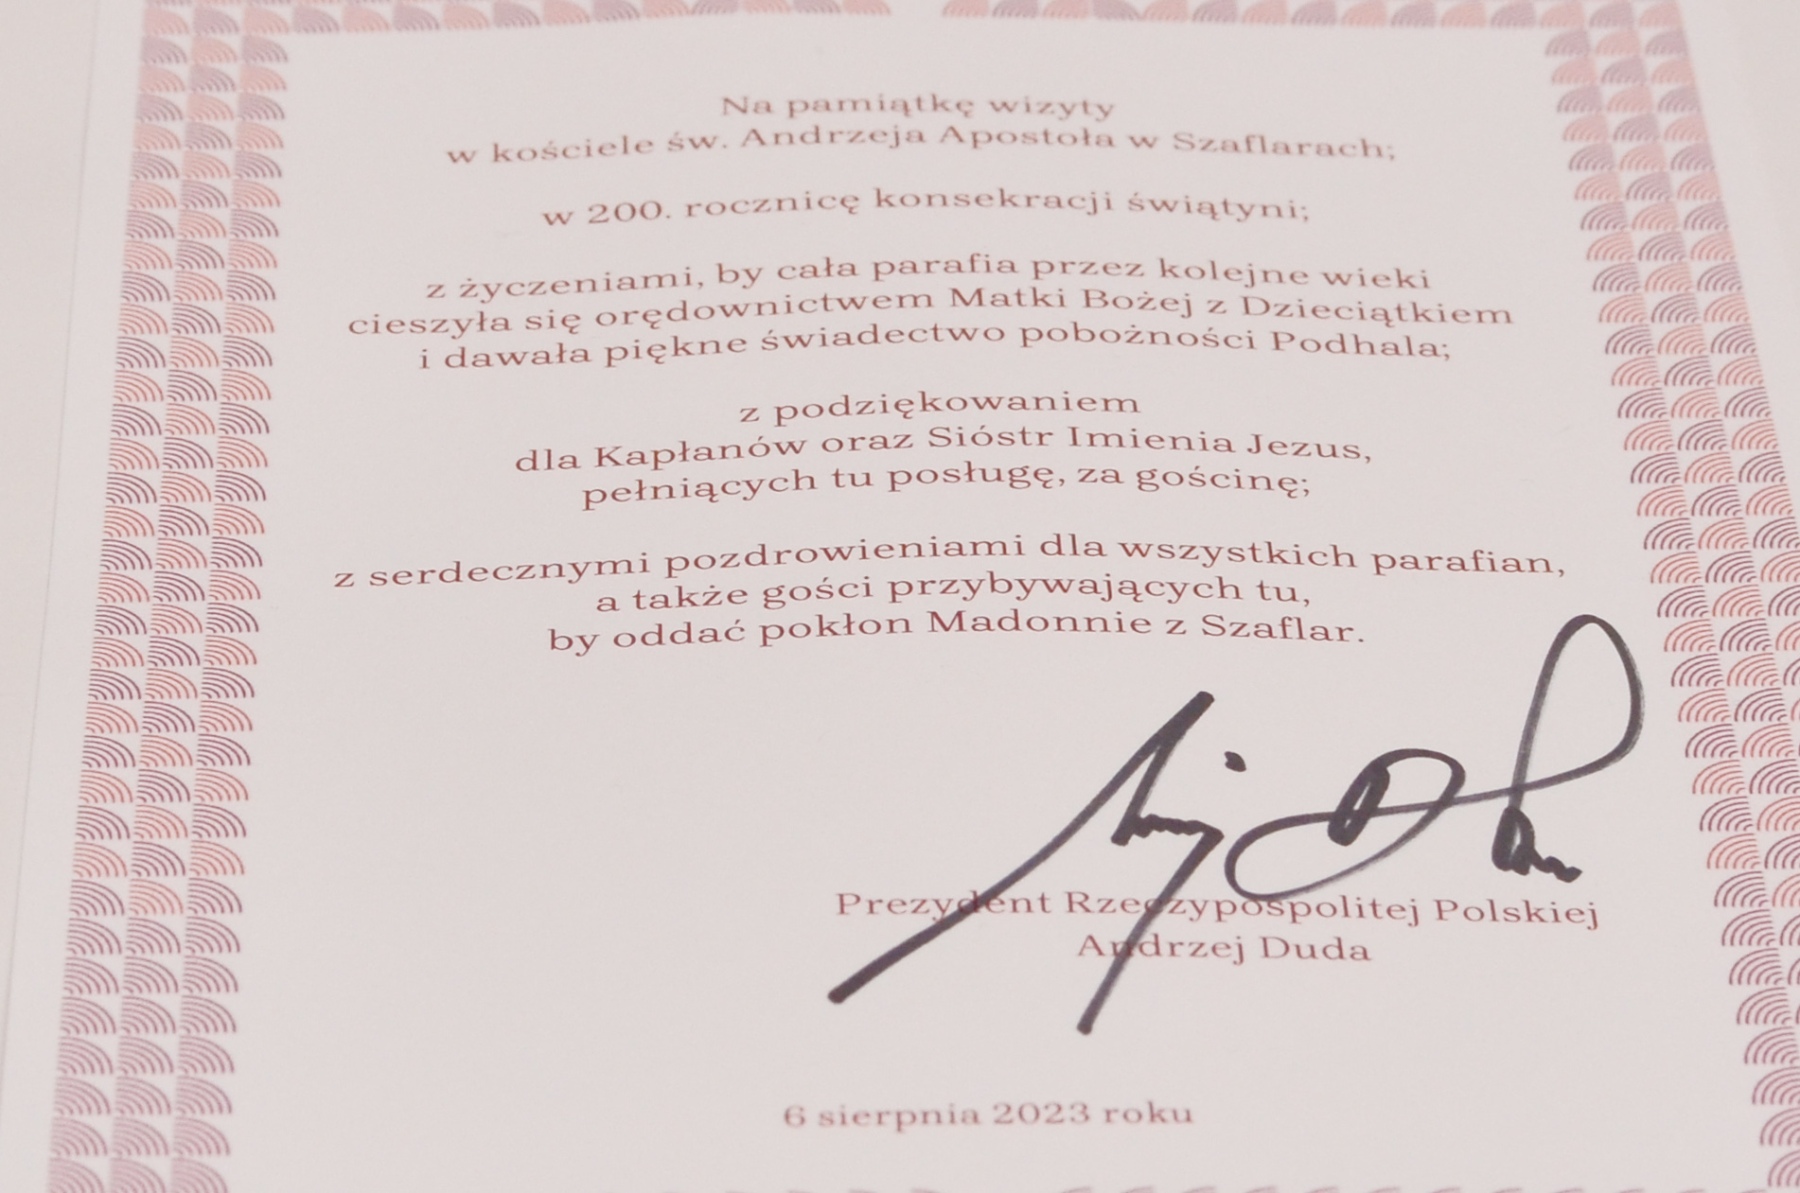 Na pamiątkę wizyty
w kościele św. Andrzeja Apostoła w Szaflarach;
w 200. rocznicę konsekracji świątyni;
z życzeniami, by cała parafia przez kolejne wieki
cieszyła się orędownictwem Matki Bożej z Dzieciątkiem
i dawała piękne świadectwo pobożności Podhala;
z podziękowaniem
dla Kapłanów oraz Sióstr Imienia Jezus,
pełniących tu posługę, za gościnę;
z serdecznymi pozdrowieniami dla wszystkich parafian,
a także gości przybywających tu,
by oddać pokłon Madonnie z Szaflar.
Prezydent Rzeczypospolitej Polskiej
Andrzej Duda
6 sierpnia 2023 roku